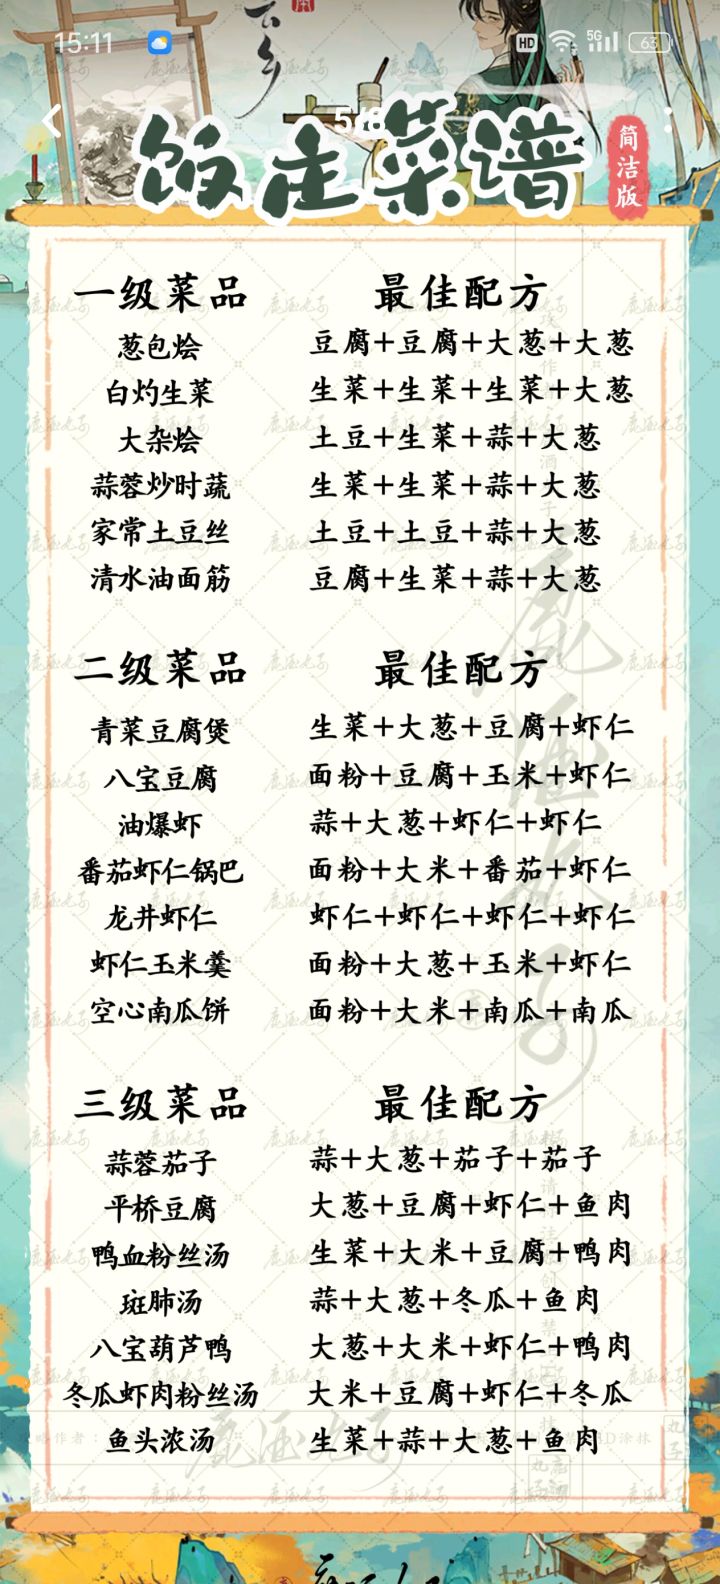 15:11
HD
5G
63
5/8
饭庄菜谱
简洁版
一级菜品 最佳配方
葱包烩 豆腐+豆腐+大葱+大葱
白灼生菜 生菜+生菜+生菜+大葱
大杂烩 土豆+生菜+蒜+大葱
蒜蓉炒时蔬 生菜+生菜+蒜+大葱
家常土豆丝 土豆+土豆+蒜+大葱
清水油面筋 豆腐+生菜+蒜+大葱
二级菜品 最佳配方
青菜豆腐煲 生菜+大葱+豆腐+虾仁
八宝豆腐 面粉+豆腐+玉米+虾仁
油爆虾 蒜+大葱+虾仁+虾仁
番茄虾仁锅巴 面粉+大米+番茄+虾仁
龙井虾仁 虾仁+虾仁+虾仁+虾仁
虾仁玉米羹 面粉+大葱+玉米+虾仁
空心南瓜饼 面粉+大米+南瓜+南瓜
三级菜品 最佳配方
蒜蓉茄子 蒜+大葱+茄子+茄子
平桥豆腐 大葱+豆腐+虾仁+鱼肉
鸭血粉丝汤 生菜+大米+豆腐+鸭肉
斑肺汤 蒜+大葱+冬瓜+鱼肉
八宝葫芦鸭 大葱+大米+虾仁+鸭肉
冬瓜虾肉粉丝汤 大米+豆腐+虾仁+冬瓜
鱼头浓汤 生菜+蒜+大葱+鱼肉